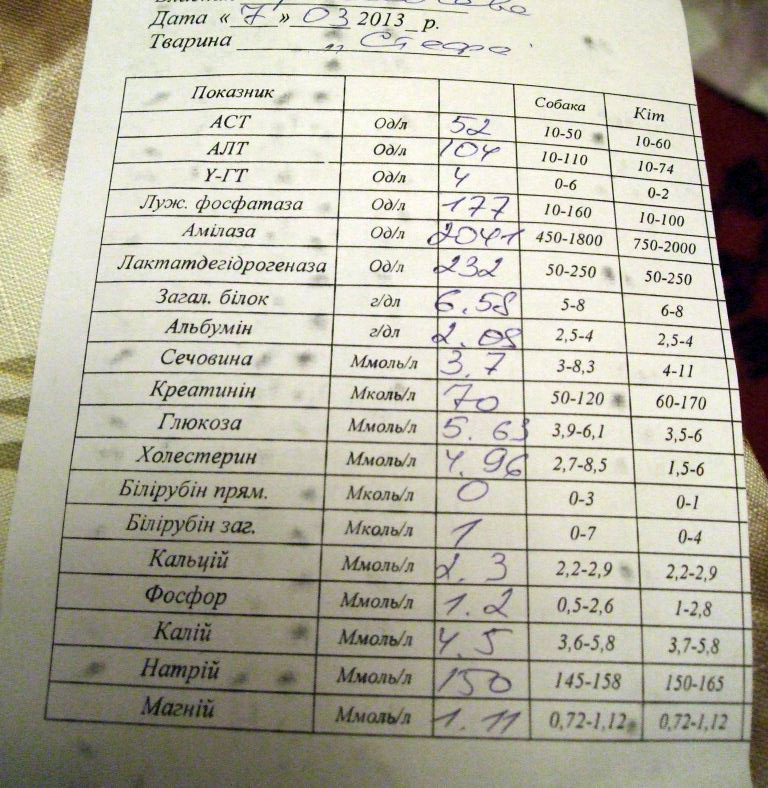 Дата «7» 03 2013 р.
Тварина
Показник Собака Кіт
АСТ Од/л 52 10-50 10-60
АЛТ Од/л 104 10-110 10-74
Y-ГТ Од/л 4 0-6 0-2
Луж. фосфатаза Од/л 177 10-160 10-100
Амілаза Од/л 2041 450-1800 750-2000
Лактатдегідрогеназа Од/л 232 50-250 50-250
Загал. білок г/дл 6.58 5-8 6-8
Альбумін г/дл 2.08 2,5-4 2,5-4
Сечовина Ммоль/л 3.7 3-8,3 4-11
Креатинін Мколь/л 70 50-120 60-170
Глюкоза Ммоль/л 5.63 3,9-6,1 3,5-6
Холестерин Ммоль/л 4.96 2,7-8,5 1,5-6
Білірубін прям. Мколь/л 0 0-3 0-1
Білірубін заг. Мколь/л 1 0-7 0-4
Кальцій Ммоль/л 2.3 2,2-2,9 2,2-2,9
Фосфор Ммоль/л 1.2 0,5-2,6 1-2,8
Калій Ммоль/л 4.5 3,6-5,8 3,7-5,8
Натрій Ммоль/л 150 145-158 150-165
Магній Ммоль/л 1.11 0,72-1,12 0,72-1,12